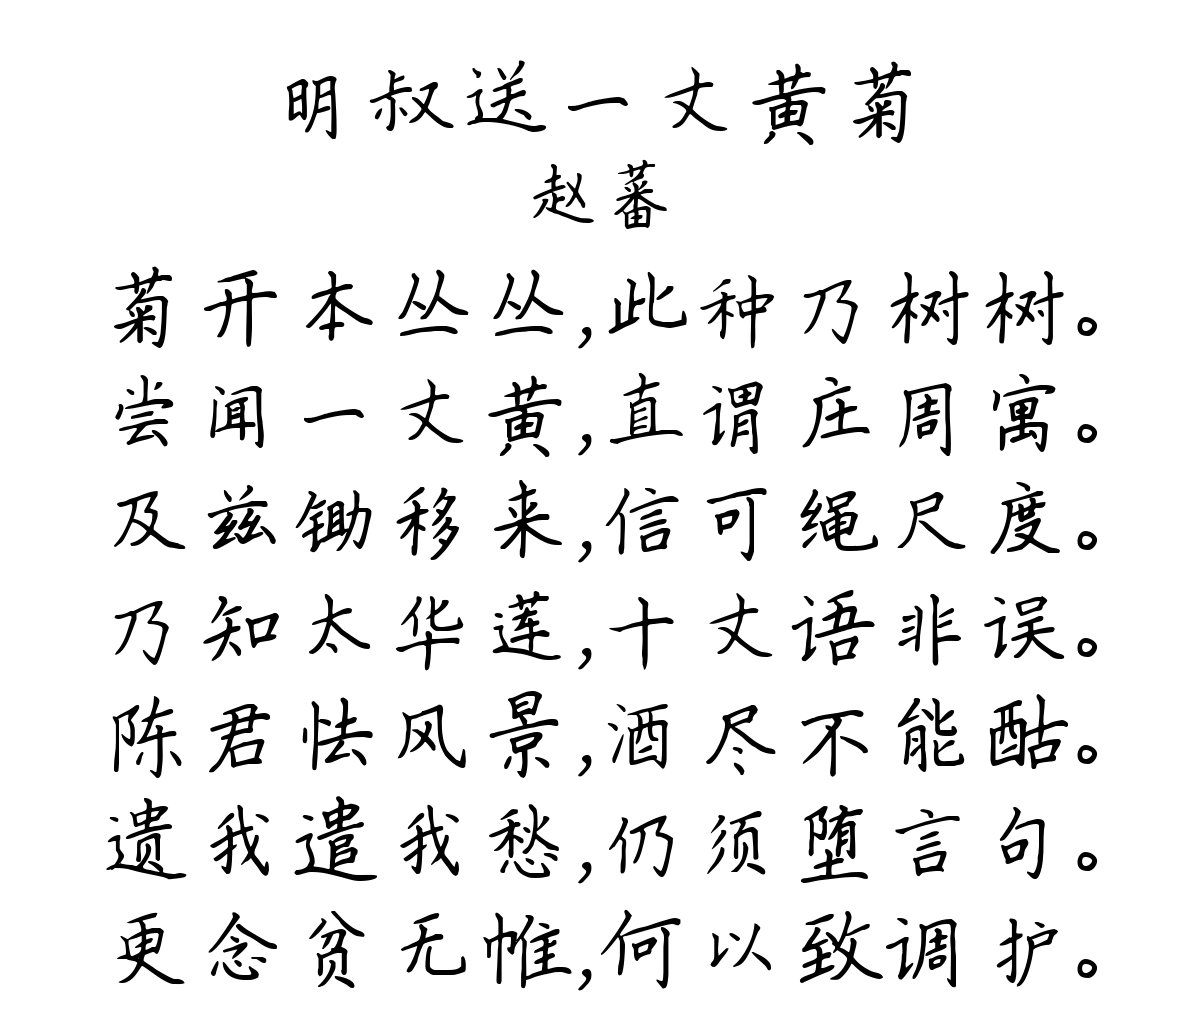 明叔送一丈黄菊
赵蕃
菊开本丛丛,此种乃树树。
尝闻一丈黄,直谓庄周寓。
及兹锄移来,信可绳尺度。
乃知太华莲,十丈语非误。
陈君怯风景,酒尽不能酤。
遗我遣我愁,仍须堕言句。
更念贫无帷,何以致调护。